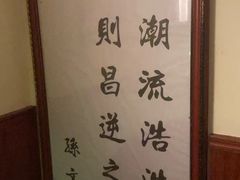 潮流浩浩
則昌逆之
孫文